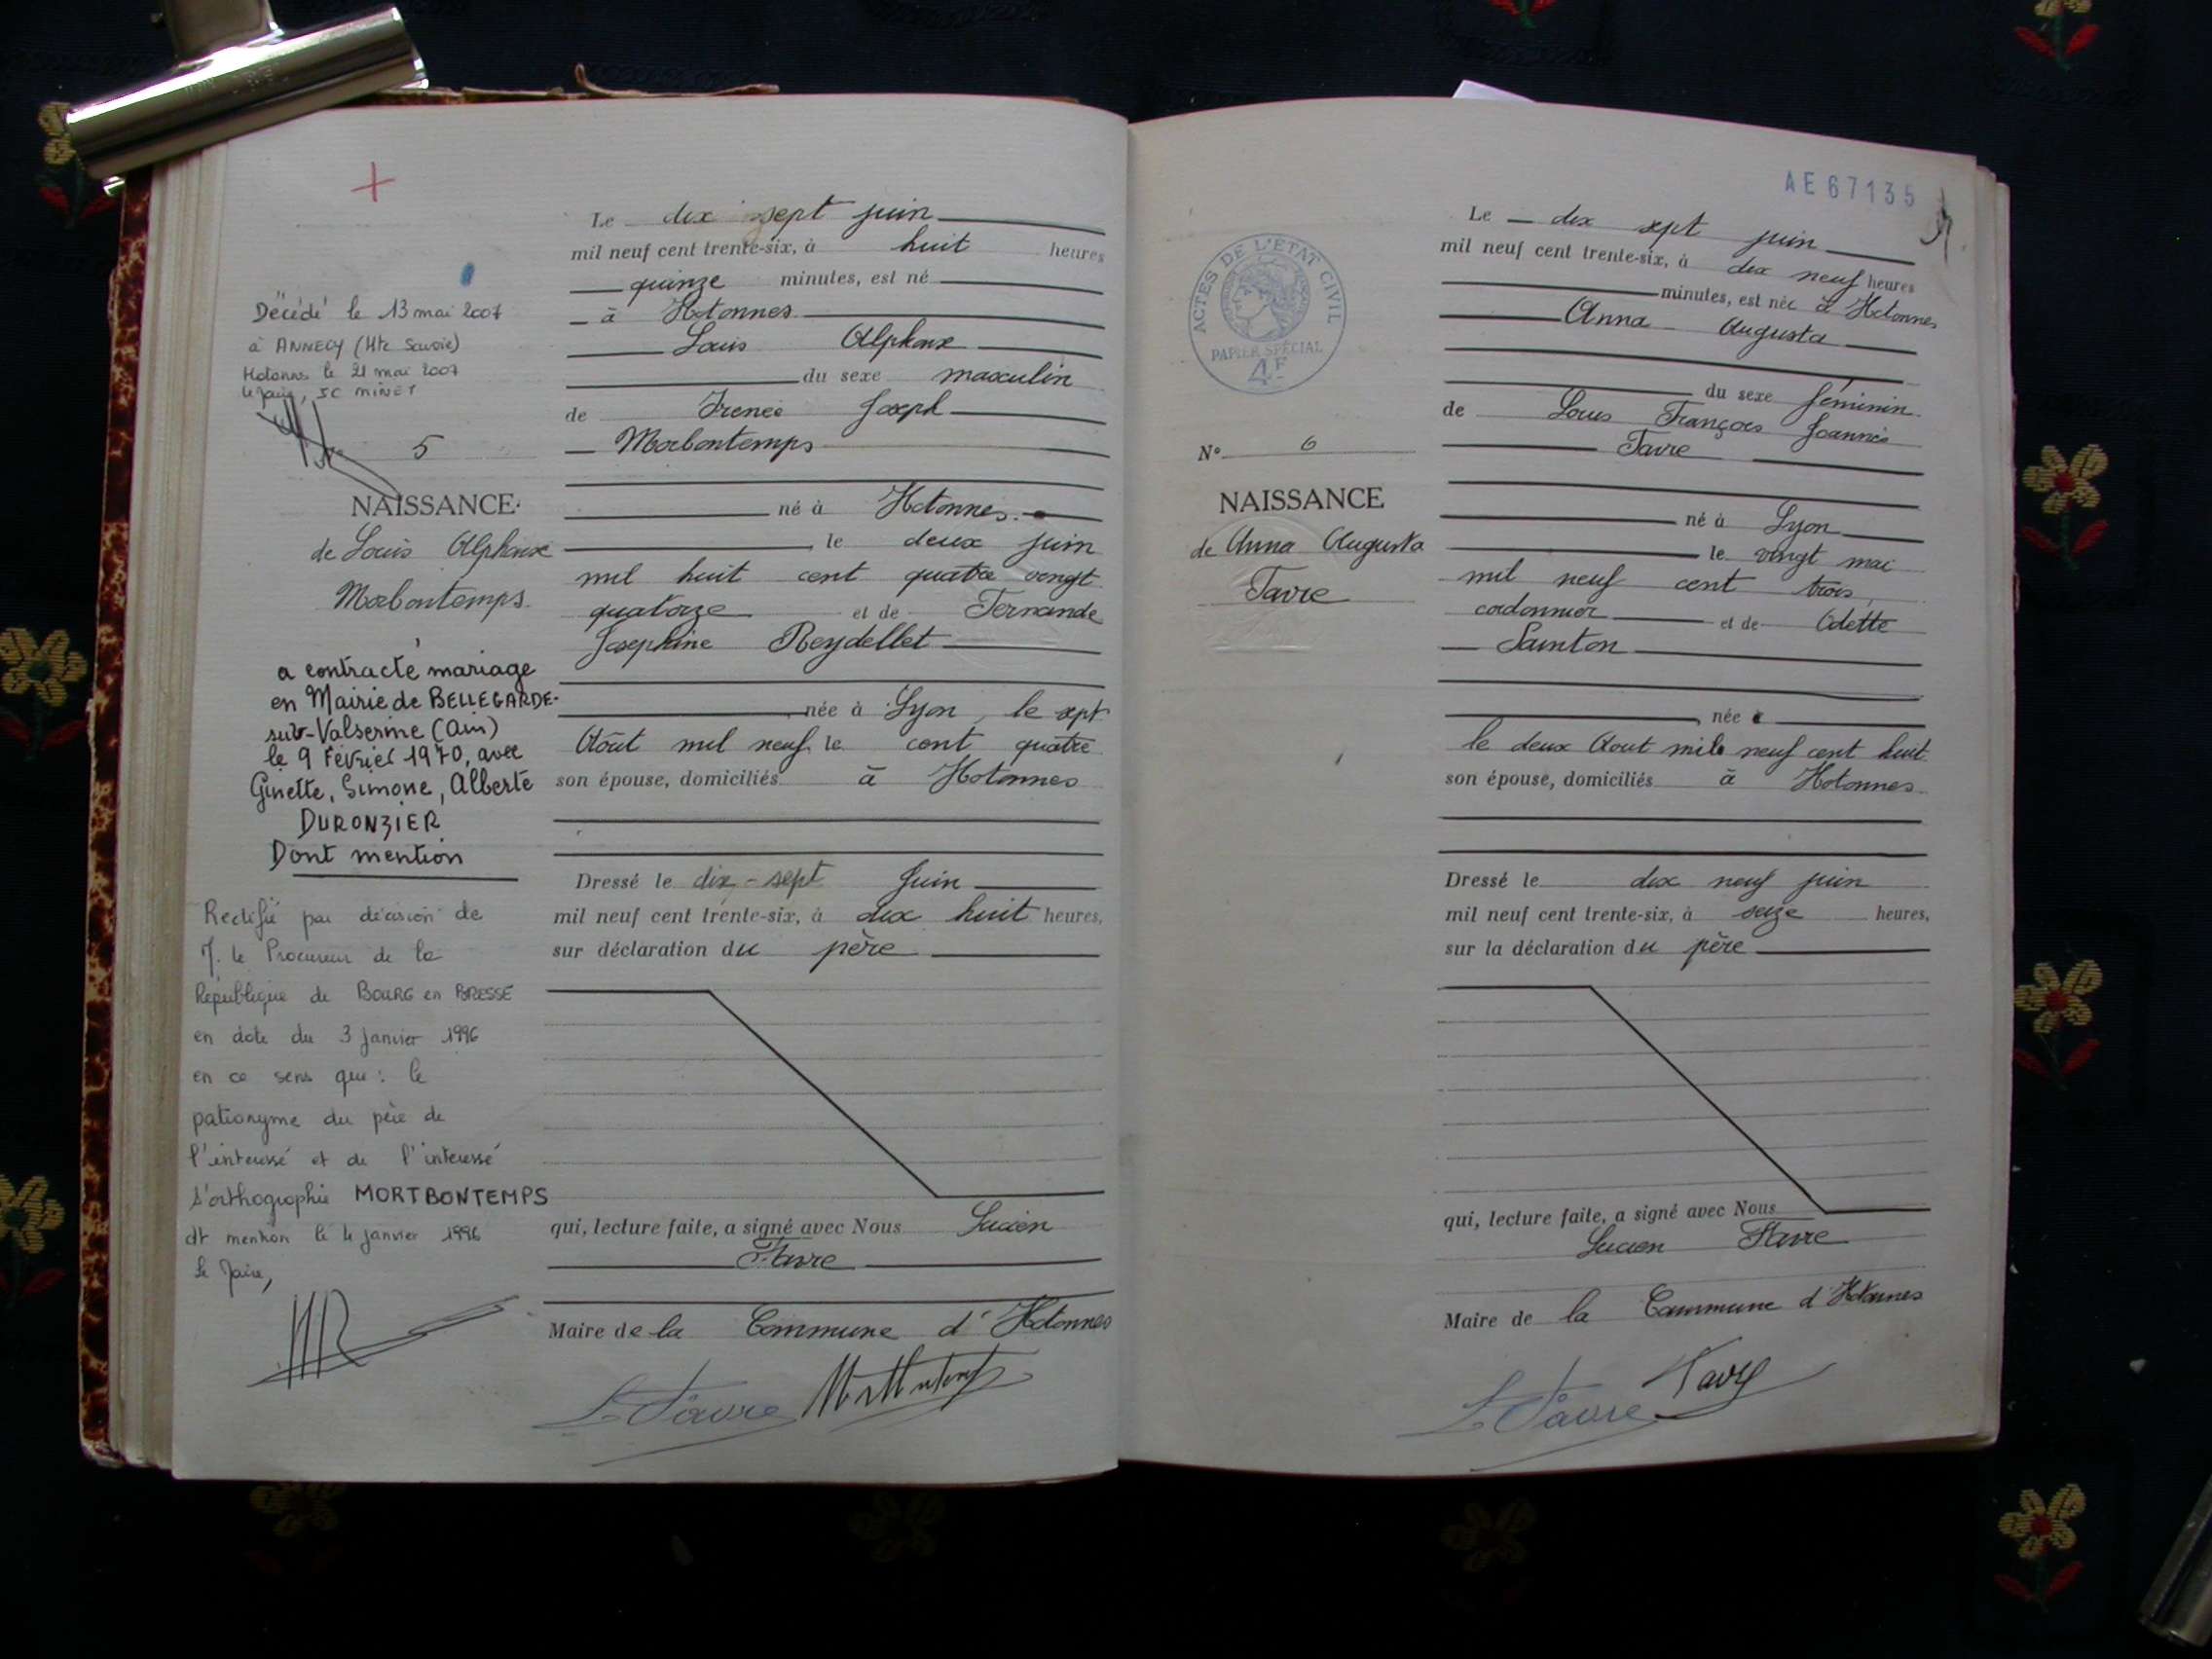 Décédé le 13 mai 2007
à ANNECY (Hte Savoie)
Hotonnes le 21 mai 2007
le Maire, JC MINET
5
NAISSANCE
de Louis Alphonse
Morbontemps
a contracté mariage
en Mairie de BELLEGARDE-
sur-Valserine (Ain)
le 9 Février 1970, avec
Ginette, Simone, Alberte
DURONZIER
Dont mention
Rectifié par décision de
M. le Procureur de la
République de BOURG en BRESSE
en date du 3 Janvier 1996
en ce sens que : le
patronyme du père de
l'intéressé et de l'intéressé
s'orthographie MORTBONTEMPS
dt mention le 4 janvier 1996
Le Maire,
Le dix sept juin
mil neuf cent trente-six, à huit heures
quinze minutes, est né
à Hotonnes
Louis Alphonse
du sexe masculin
de Irenée Joseph
Morbontemps
né à Hotonnes
, le deux juin
mil huit cent quatre vingt
quatorze et de Fernande
Josephine Reydellet
née à Lyon, le sept
Août mil neuf le cent quatre
son épouse, domiciliés à Hotonnes
Dressé le dix-sept Juin
mil neuf cent trente-six, à dix huit heures,
sur déclaration du père
qui, lecture faite, a signé avec Nous Lucien
Favre
Maire de la Commune d'Hotonnes
L. Favre Mortbontemps
AE67135
ACTES DE L'ETAT CIVIL
PAPIER SPÉCIAL
4F
N° 6
NAISSANCE
de Anna Augusta
Favre
Le dix sept juin
mil neuf cent trente-six, à dix neuf heures
minutes, est née à Hotonnes
Anna Augusta
du sexe féminin
de Louis François Joannès
Favre
né à Lyon
le vingt mai
mil neuf cent trois,
cordonnier et de Odette
Sainton
, née
le deux Aout mil neuf cent huit
son épouse, domiciliés à Hotonnes
Dressé le dix neuf juin
mil neuf cent trente-six, à seize heures,
sur la déclaration du père
qui, lecture faite, a signé avec Nous
Lucien Favre
Maire de la Commune d'Hotonnes
L. Favre Favre